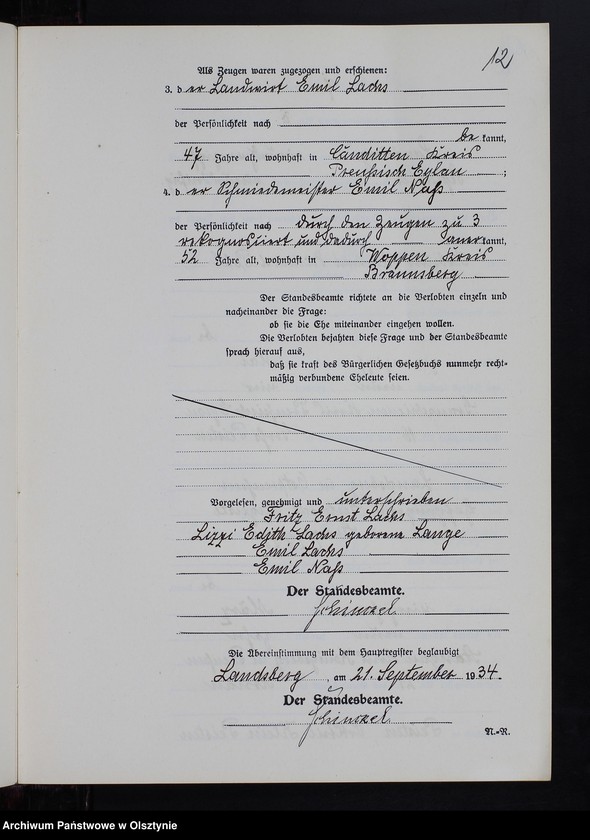 12
Als Zeugen waren zugezogen und erschienen:
3. der Landwirt Emil Lachs
der Persönlichkeit nach
be kannt,
47 Jahre alt, wohnhaft in Canditten Kreis
Preußisch Eylau ;
4. der Schmiedemeister Emil Naß
der Persönlichkeit nach durch den Zeugen zu 3
rekognosziert und dadurch aner kannt,
52 Jahre alt, wohnhaft in Woppen Kreis
Braunsberg
Der Standesbeamte richtete an die Verlobten einzeln und
nacheinander die Frage:
ob sie die Ehe miteinander eingehen wollen.
Die Verlobten bejahten diese Frage und der Standesbeamte
sprach hierauf aus,
daß sie kraft des Bürgerlichen Gesetzbuchs nunmehr recht-
mäßig verbundene Eheleute seien.
Vorgelesen, genehmigt und unterschrieben
Fritz Ernst Lachs
Lizzi Edith Lachs geborene Lange
Emil Lachs
Emil Naß
Der Standesbeamte.
Schinzel
Die Übereinstimmung mit dem Hauptregister beglaubigt
Landsberg, am 21. September 1934.
Der Standesbeamte.
Schinzel
N.-R.
Archiwum Państwowe w Olsztynie